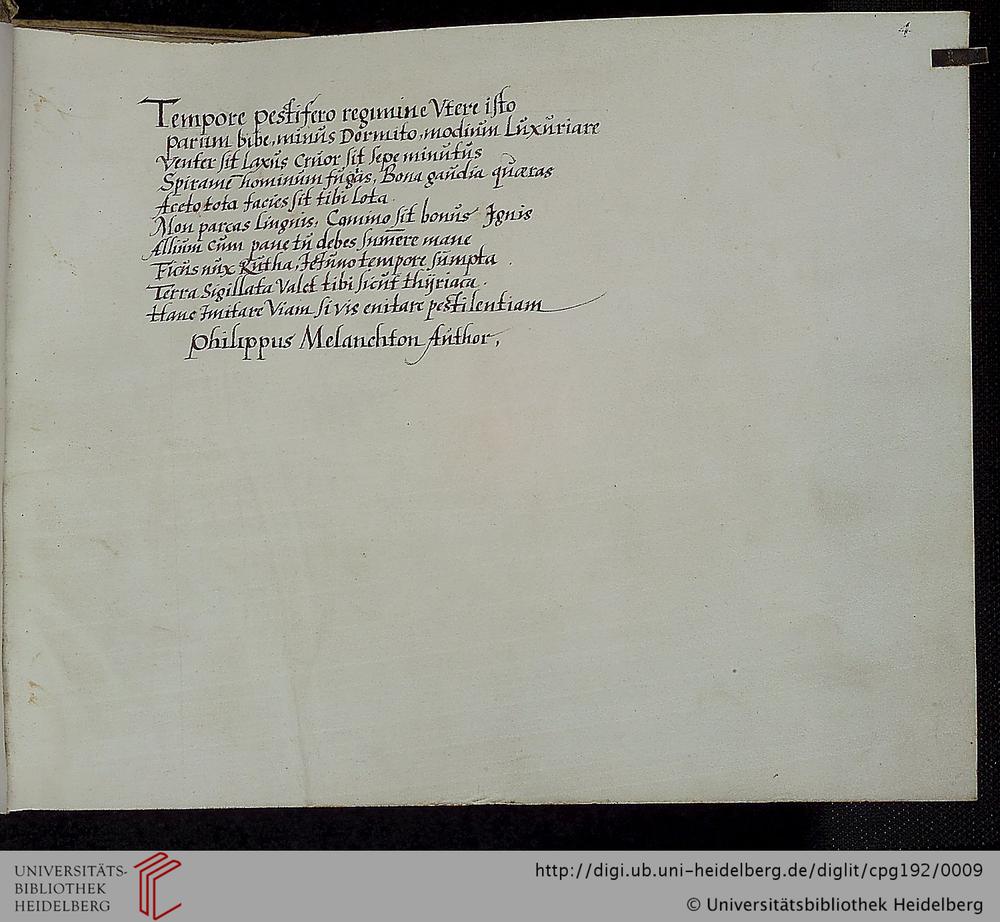 4.
Tempore pestifero regimine Vtere isto
parum bibe, minus Dormito, modium Luxuriare
Venter sit Laxus Cruor sit sepe minutus
Spiramē hominum fugas, Bona gaudia quæras
Aceto tota facies sit tibi Lota
Non parcas Lingnis, Camino sit bonus Ignis
Allium cum pane tu debes sumere mane
Ficus nux Rutha, Jeiuno tempore sumpta
Terra Sigillata Valet tibi sicut thÿriaca.
Hanc Imitare Viam si vis enitare pestilentiam
Philippus Melanchton Author,
UNIVERSITÄTS-
BIBLIOTHEK
HEIDELBERG
http://digi.ub.uni-heidelberg.de/diglit/cpg192/0009
© Universitätsbibliothek Heidelberg